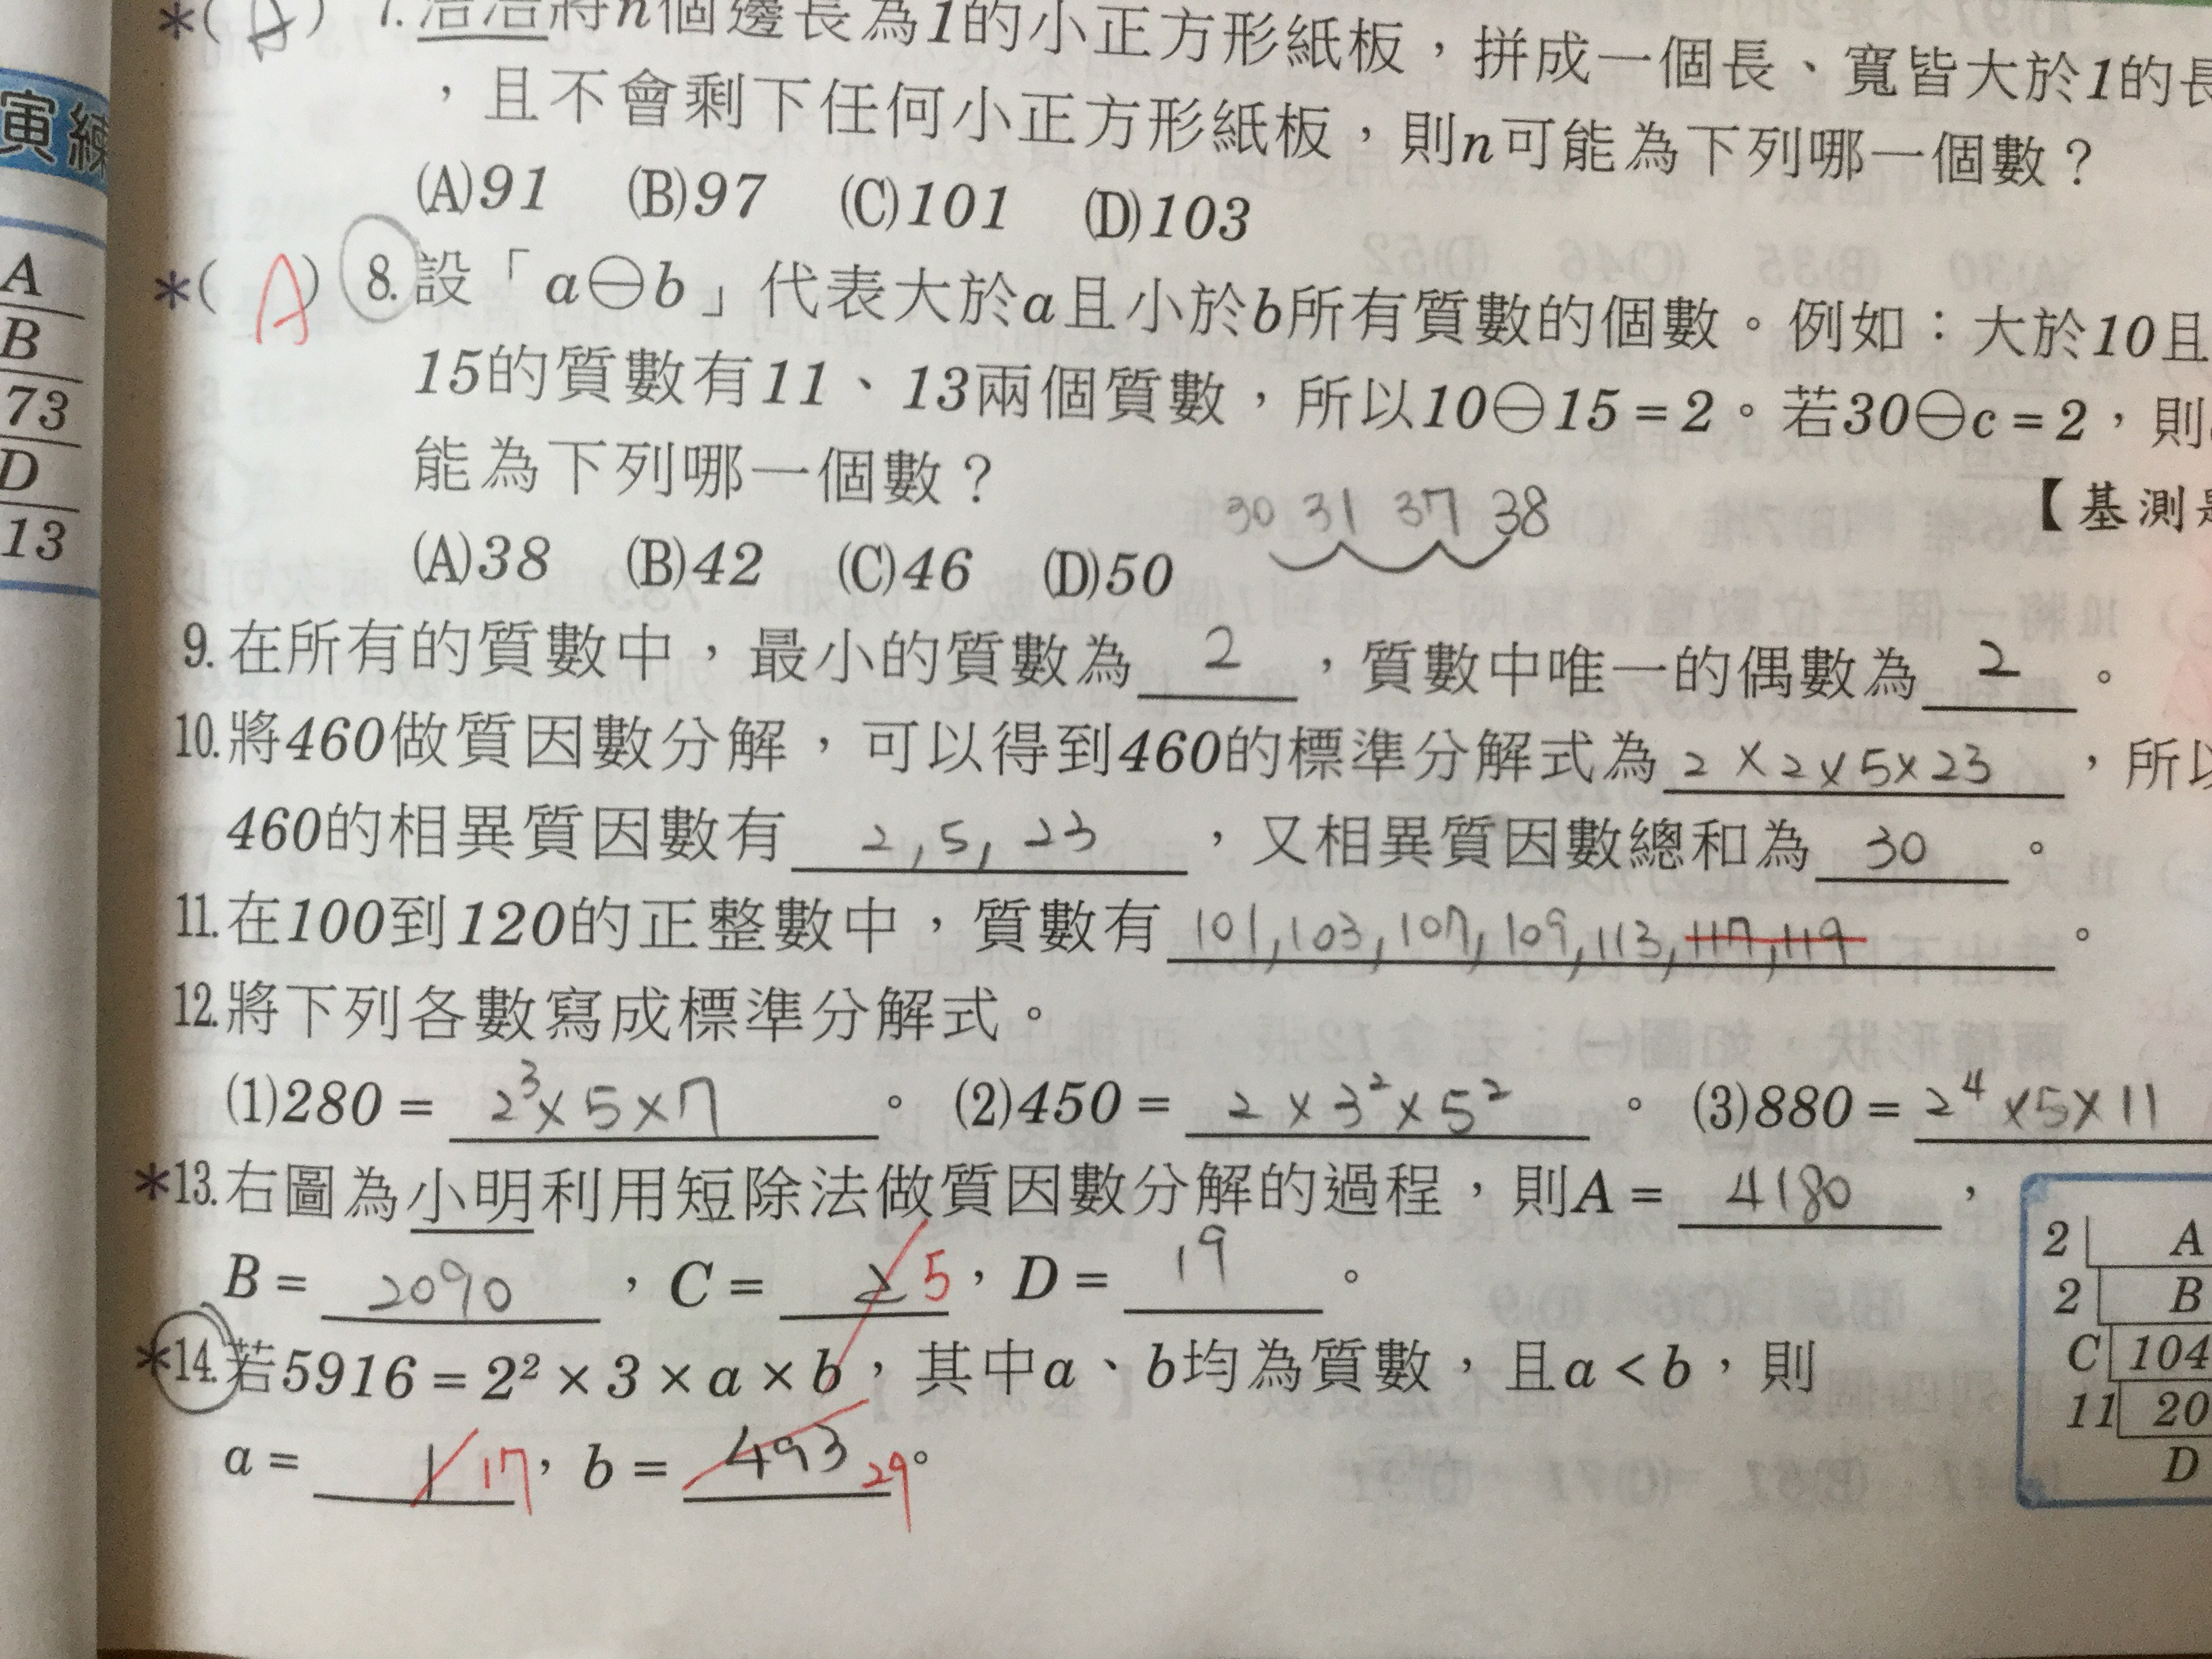 *( A ) 7. 浩浩將n個邊長為1的小正方形紙板，拼成一個長、寬皆大於1的長
，且不會剩下任何小正方形紙板，則n可能為下列哪一個數？
(A)91 (B)97 (C)101 (D)103
*( A ) 8. 設「a⊖b」代表大於a且小於b所有質數的個數。例如：大於10且
15的質數有11、13兩個質數，所以10⊖15=2。若30⊖c=2，則
能為下列哪一個數？
【基測
30 31 37 38
(A)38 (B)42 (C)46 (D)50
9. 在所有的質數中，最小的質數為 2 ，質數中唯一的偶數為 2 。
10. 將460做質因數分解，可以得到460的標準分解式為 2×2×5×23 ，所以
460的相異質因數有 2,5,23 ，又相異質因數總和為 30 。
11. 在100到120的正整數中，質數有 101,103,107,109,113,117,119 。
12. 將下列各數寫成標準分解式。
(1)280= 2³×5×7 。 (2)450= 2×3²×5² 。 (3)880= 2⁴×5×11
*13. 右圖為小明利用短除法做質因數分解的過程，則A= 4180 ，
B= 2090 ，C= 2 5 ，D= 19 。
*14. 若5916=2²×3×a×b，其中a、b均為質數，且a<b，則
a= 1 17 ，b= 493 29 。
2 A
2 B
C 104
11 20
D
演練
A
B
73
D
13